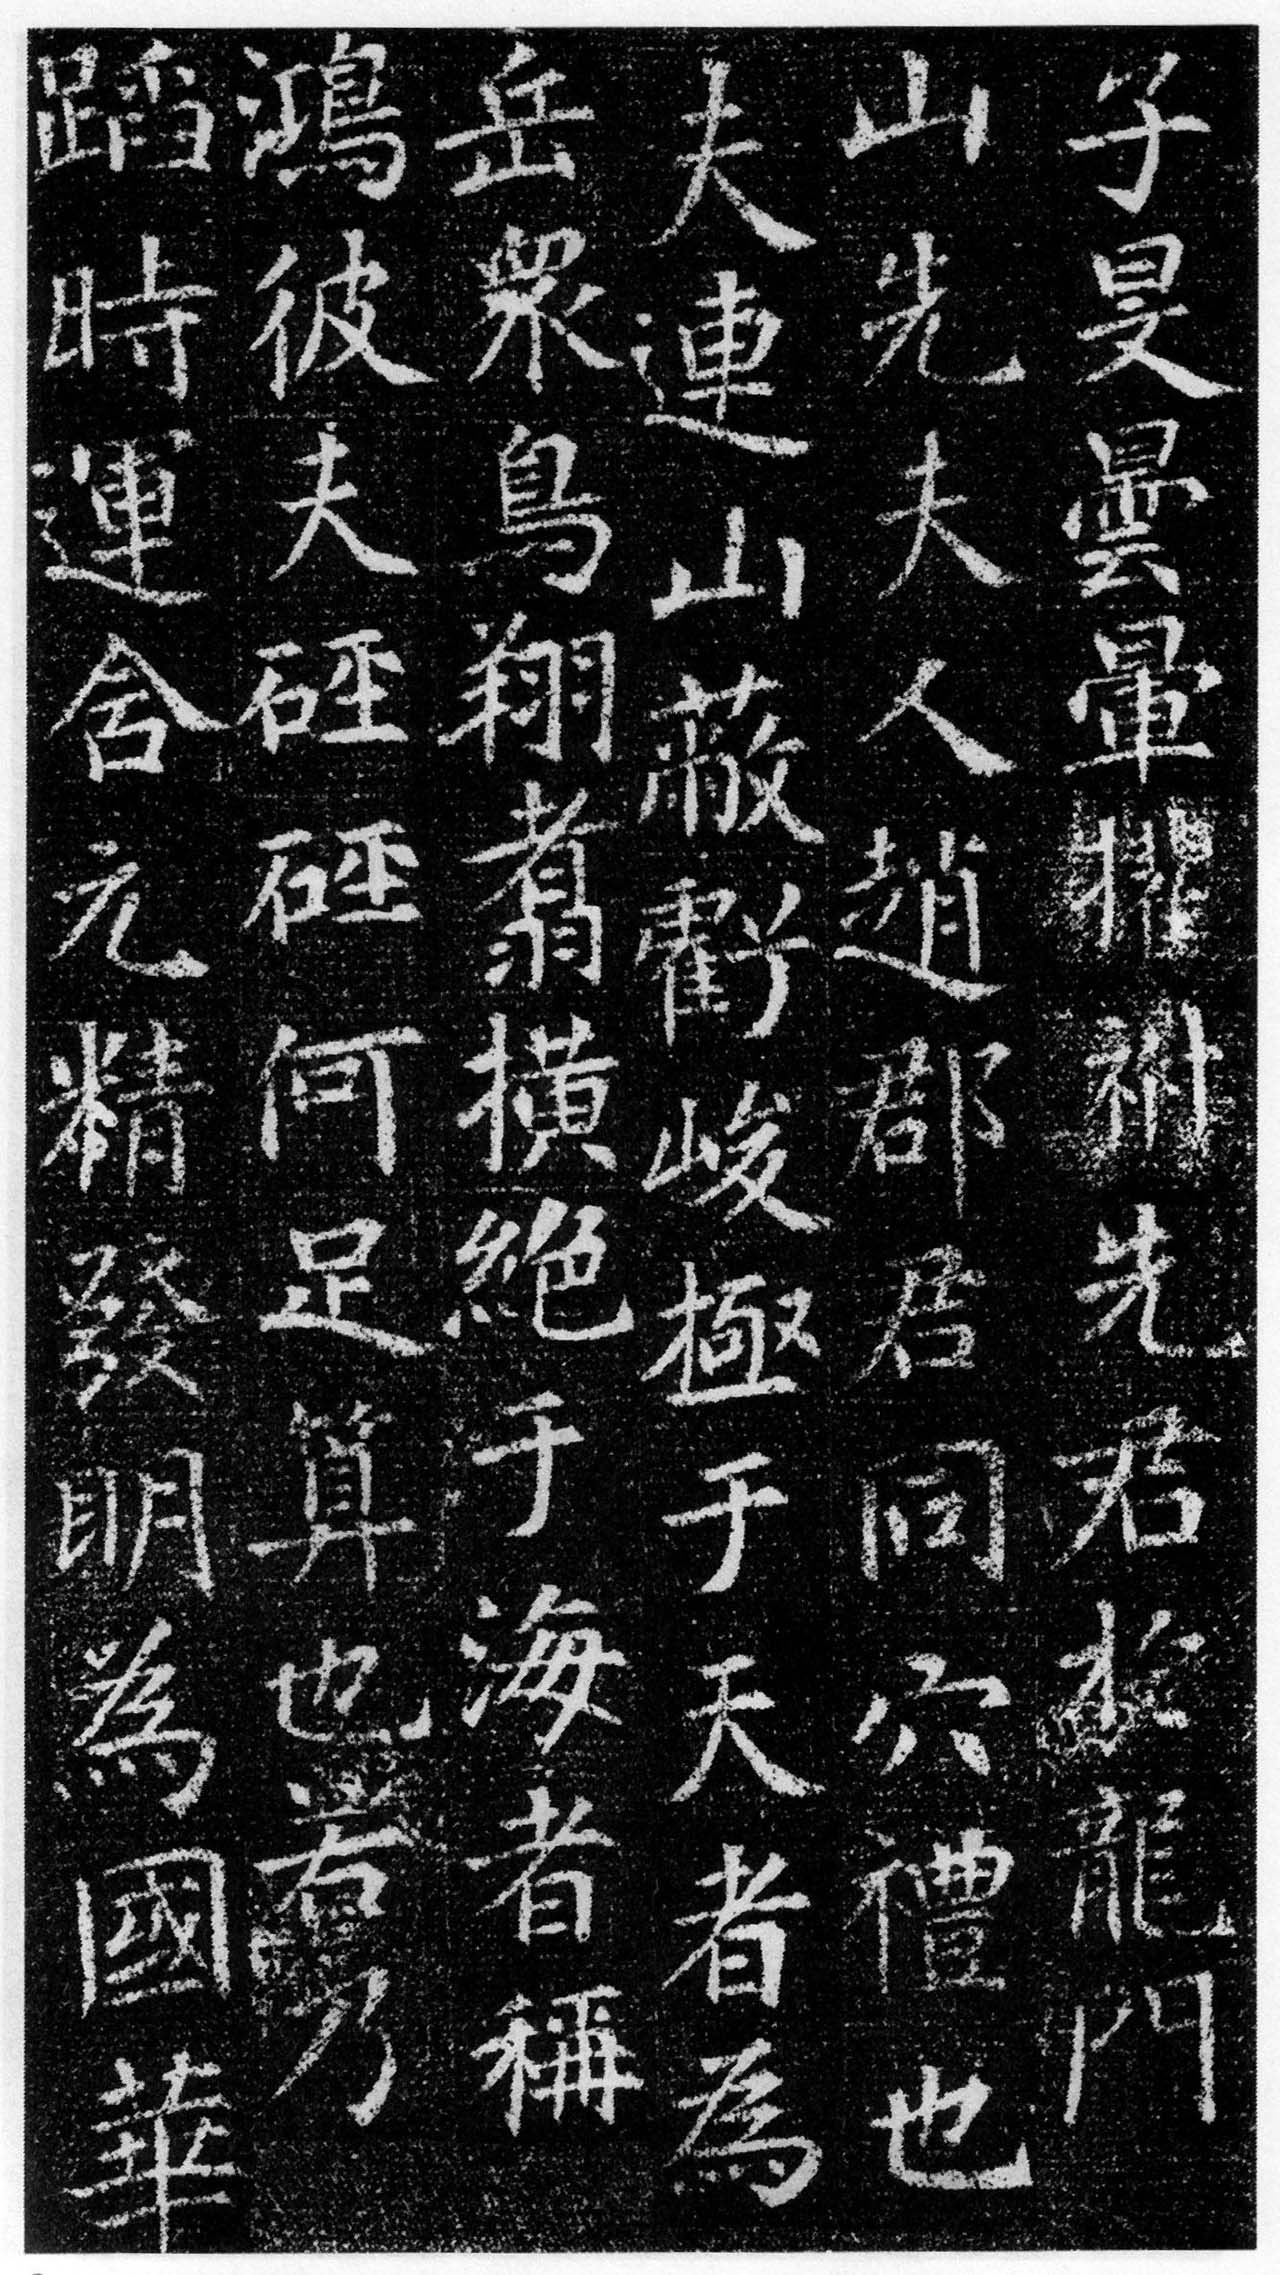 子旻曇暈擢祔先君於龍門
山先夫人趙郡君同穴禮也
夫連山蔽虧峻極于天者為
岳衆鳥翔翥橫絶于海者稱
鴻彼夫硜硜何足算也若乃
蹈時運含元精發明為國華